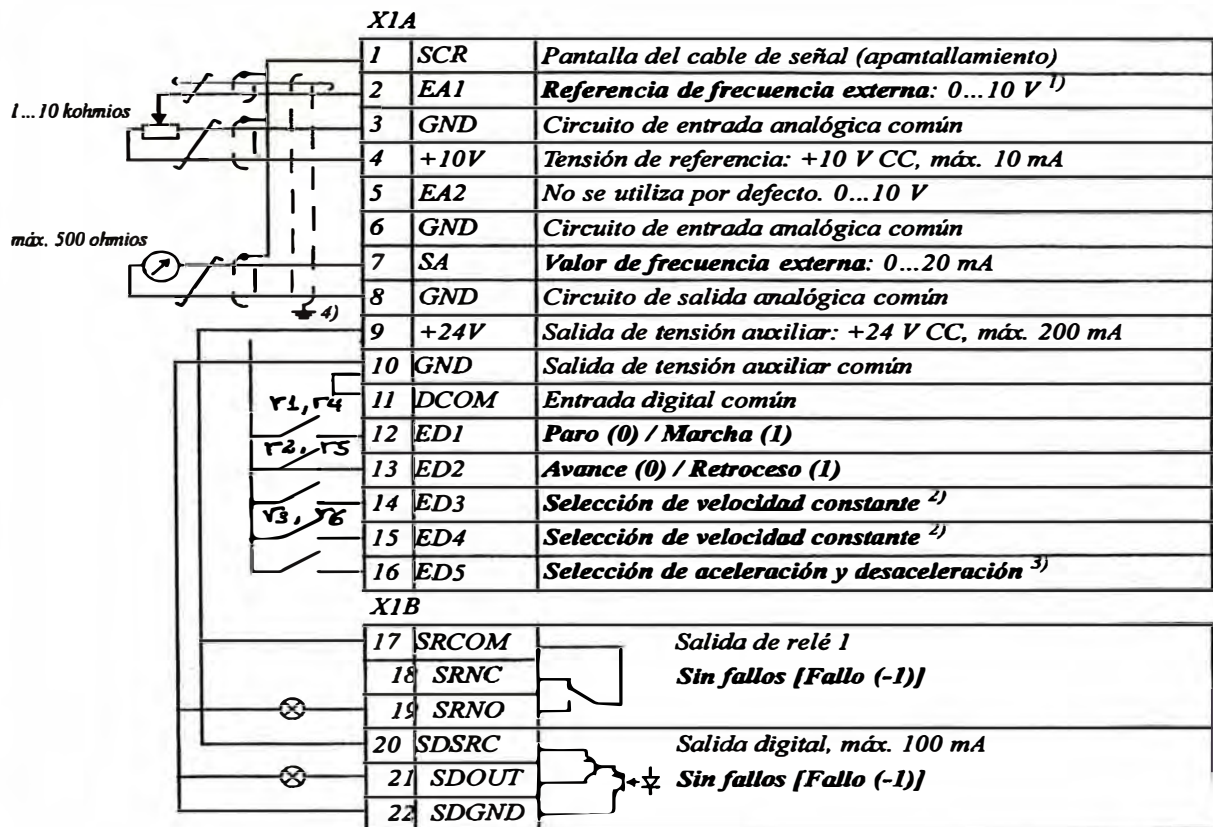 X1A
1 SCR Pantalla del cable de señal (apantallamiento)
2 EA1 Referencia de frecuencia externa: 0...10 V 1)
1...10 kohmios
3 GND Circuito de entrada analógica común
4 +10V Tensión de referencia: +10 V CC, máx. 10 mA
5 EA2 No se utiliza por defecto. 0...10 V
6 GND Circuito de entrada analógica común
máx. 500 ohmios
7 SA Valor de frecuencia externa: 0...20 mA
8 GND Circuito de salida analógica común
4)
9 +24V Salida de tensión auxiliar: +24 V CC, máx. 200 mA
10 GND Salida de tensión auxiliar común
r1, r4
11 DCOM Entrada digital común
12 ED1 Paro (0) / Marcha (1)
r2, r5
13 ED2 Avance (0) / Retroceso (1)
14 ED3 Selección de velocidad constante 2)
r3, r6
15 ED4 Selección de velocidad constante 2)
16 ED5 Selección de aceleración y desaceleración 3)
X1B
17 SRCOM Salida de relé 1
18 SRNC Sin fallos [Fallo (-1)]
19 SRNO
20 SDSRC Salida digital, máx. 100 mA
21 SDOUT Sin fallos [Fallo (-1)]
22 SDGND